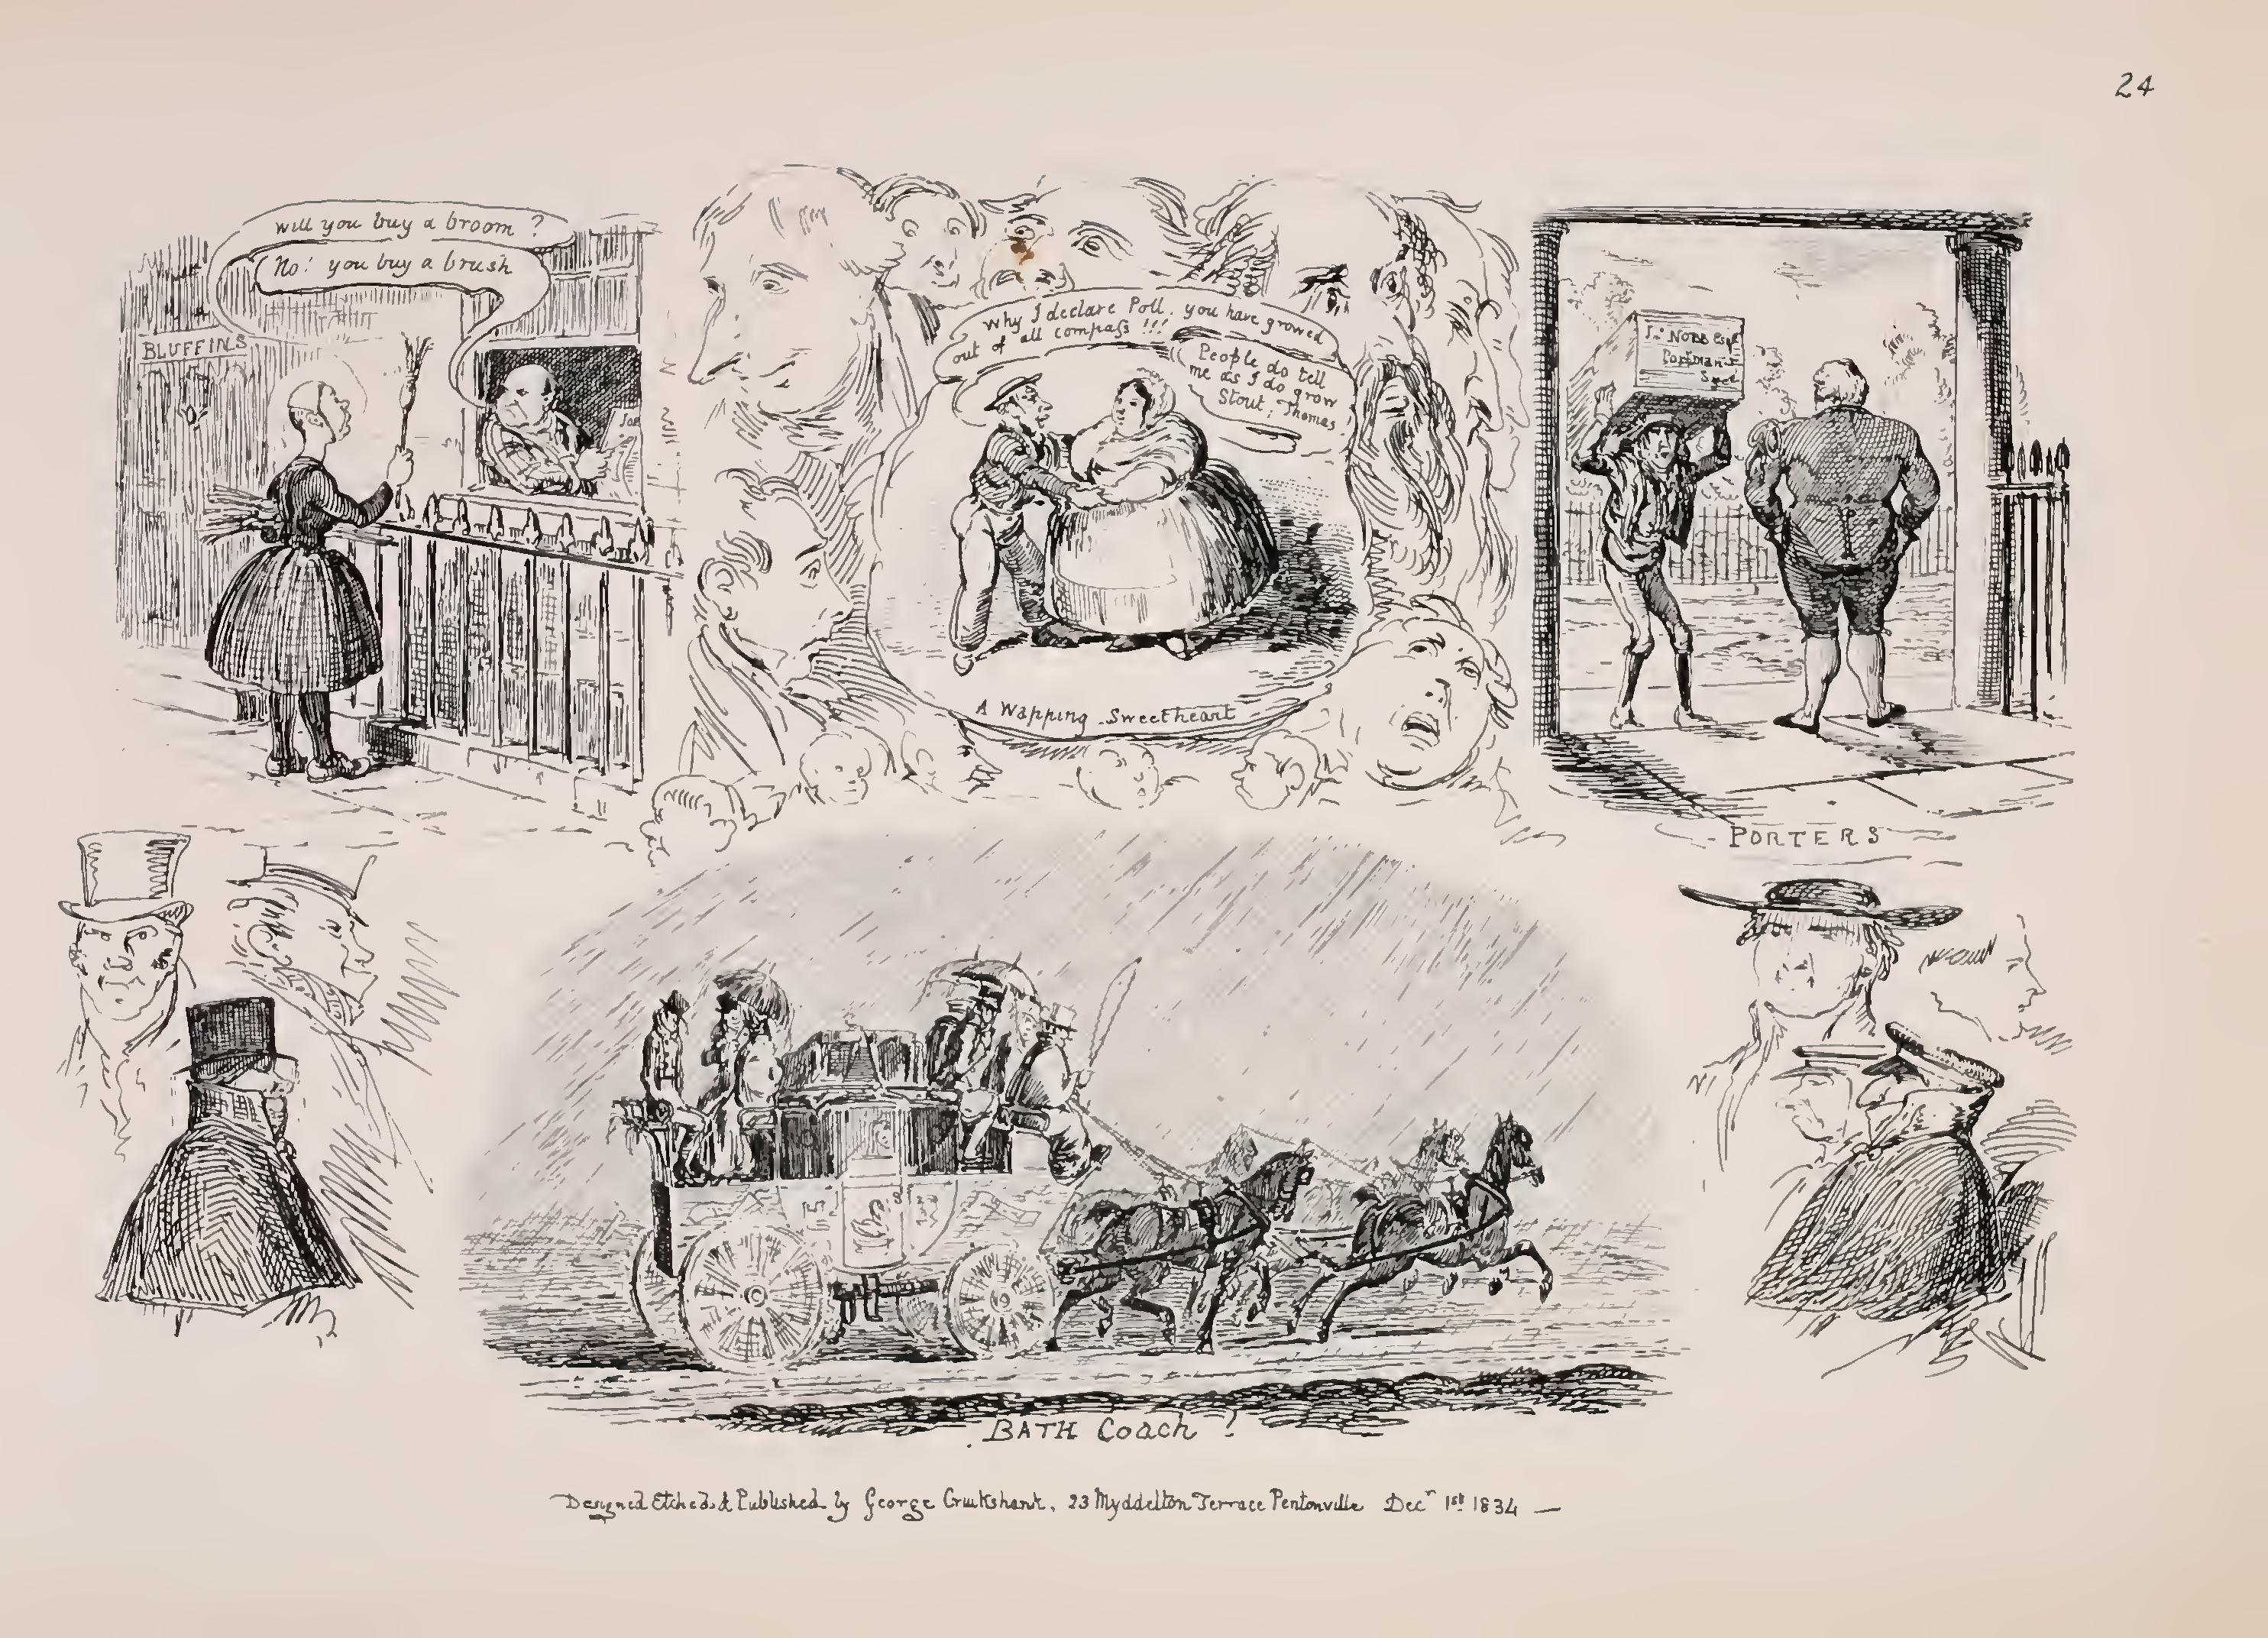 24
will you buy a broom ?
No! you buy a brush
BLUFFINS
Why I declare Poll, you have growed
out of all compaſs !!!
People do tell
me as I do grow
Stout, Thomas
A Wapping Sweetheart
NOBB Esqr
PORTERS
BATH Coach !
Designed Etched & Published by George Cruikshank, 23 Myddelton Terrace Pentonville Decr 1st 1834 —